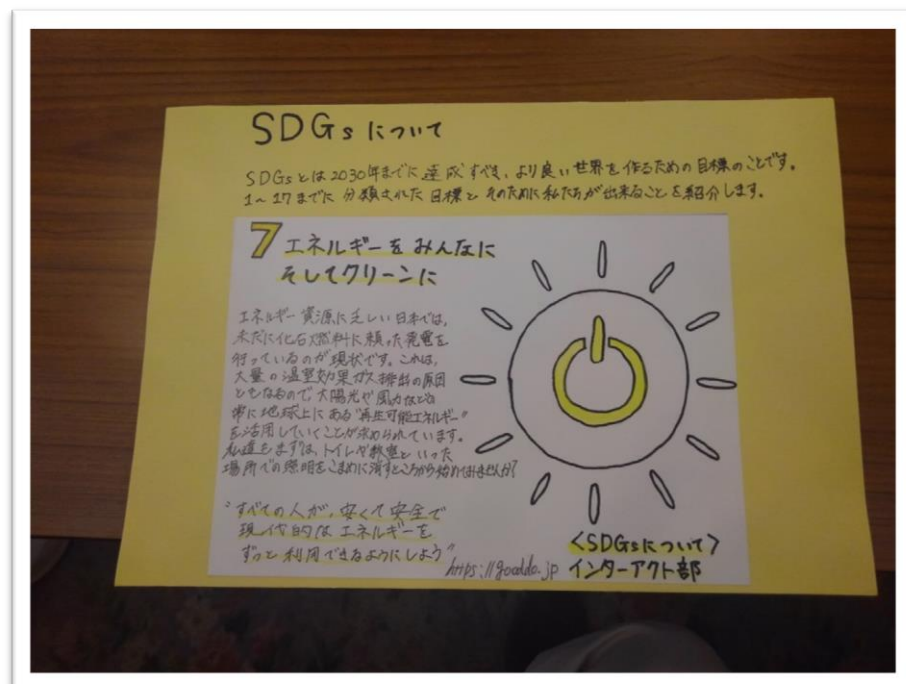 SDGsについて
SDGsとは2030年までに達成すべき、より良い世界を作るための目標のことです。
1～17までに分類された目標とそのために私たちが出来ることを紹介します。
7 エネルギーをみんなに
そしてクリーンに
エネルギー資源に乏しい日本では、
未だに化石燃料に頼った発電を
行っているのが現状です。これは、
大量の温室効果ガス排出の原因
ともなるので太陽光や風力などの
常に地球上にある"再生可能エネルギー"
を活用していくことが求められています。
私達もまずは、トイレや教室といった
場所での照明をこまめに消すところから始めてみませんか?
"すべての人が、安くて安全で
現代的なエネルギーを
ずっと利用できるようにしよう"
https://gooddo.jp
<SDGsについて>
インターアクト部